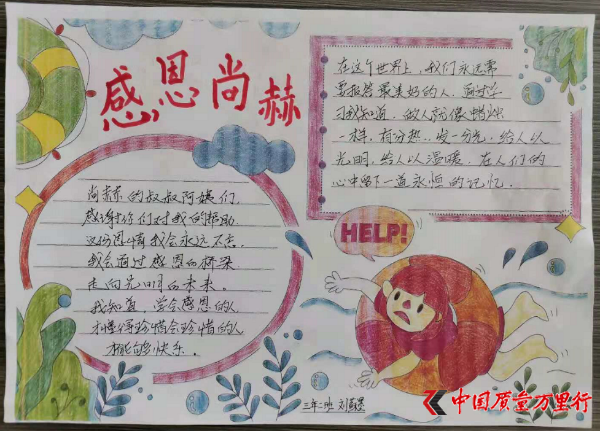 感恩尚赫
在这个世界上,我们永远需
要报答最美好的人,通过学
习我知道,做人就像蜡烛
一样,有一分热,发一分光,给人以
光明,给人以温暖.在人们的
心中留下一道永恒的记忆.
尚赫的叔叔阿姨们,
感谢你们对我的帮助
这份恩情我会永远不忘.
我会通过感恩的桥梁
走向光明的未来.
我知道,学会感恩的人
才懂得珍惜会珍惜的人
才能够快乐.
HELP!
三年二班
中国质量万里行